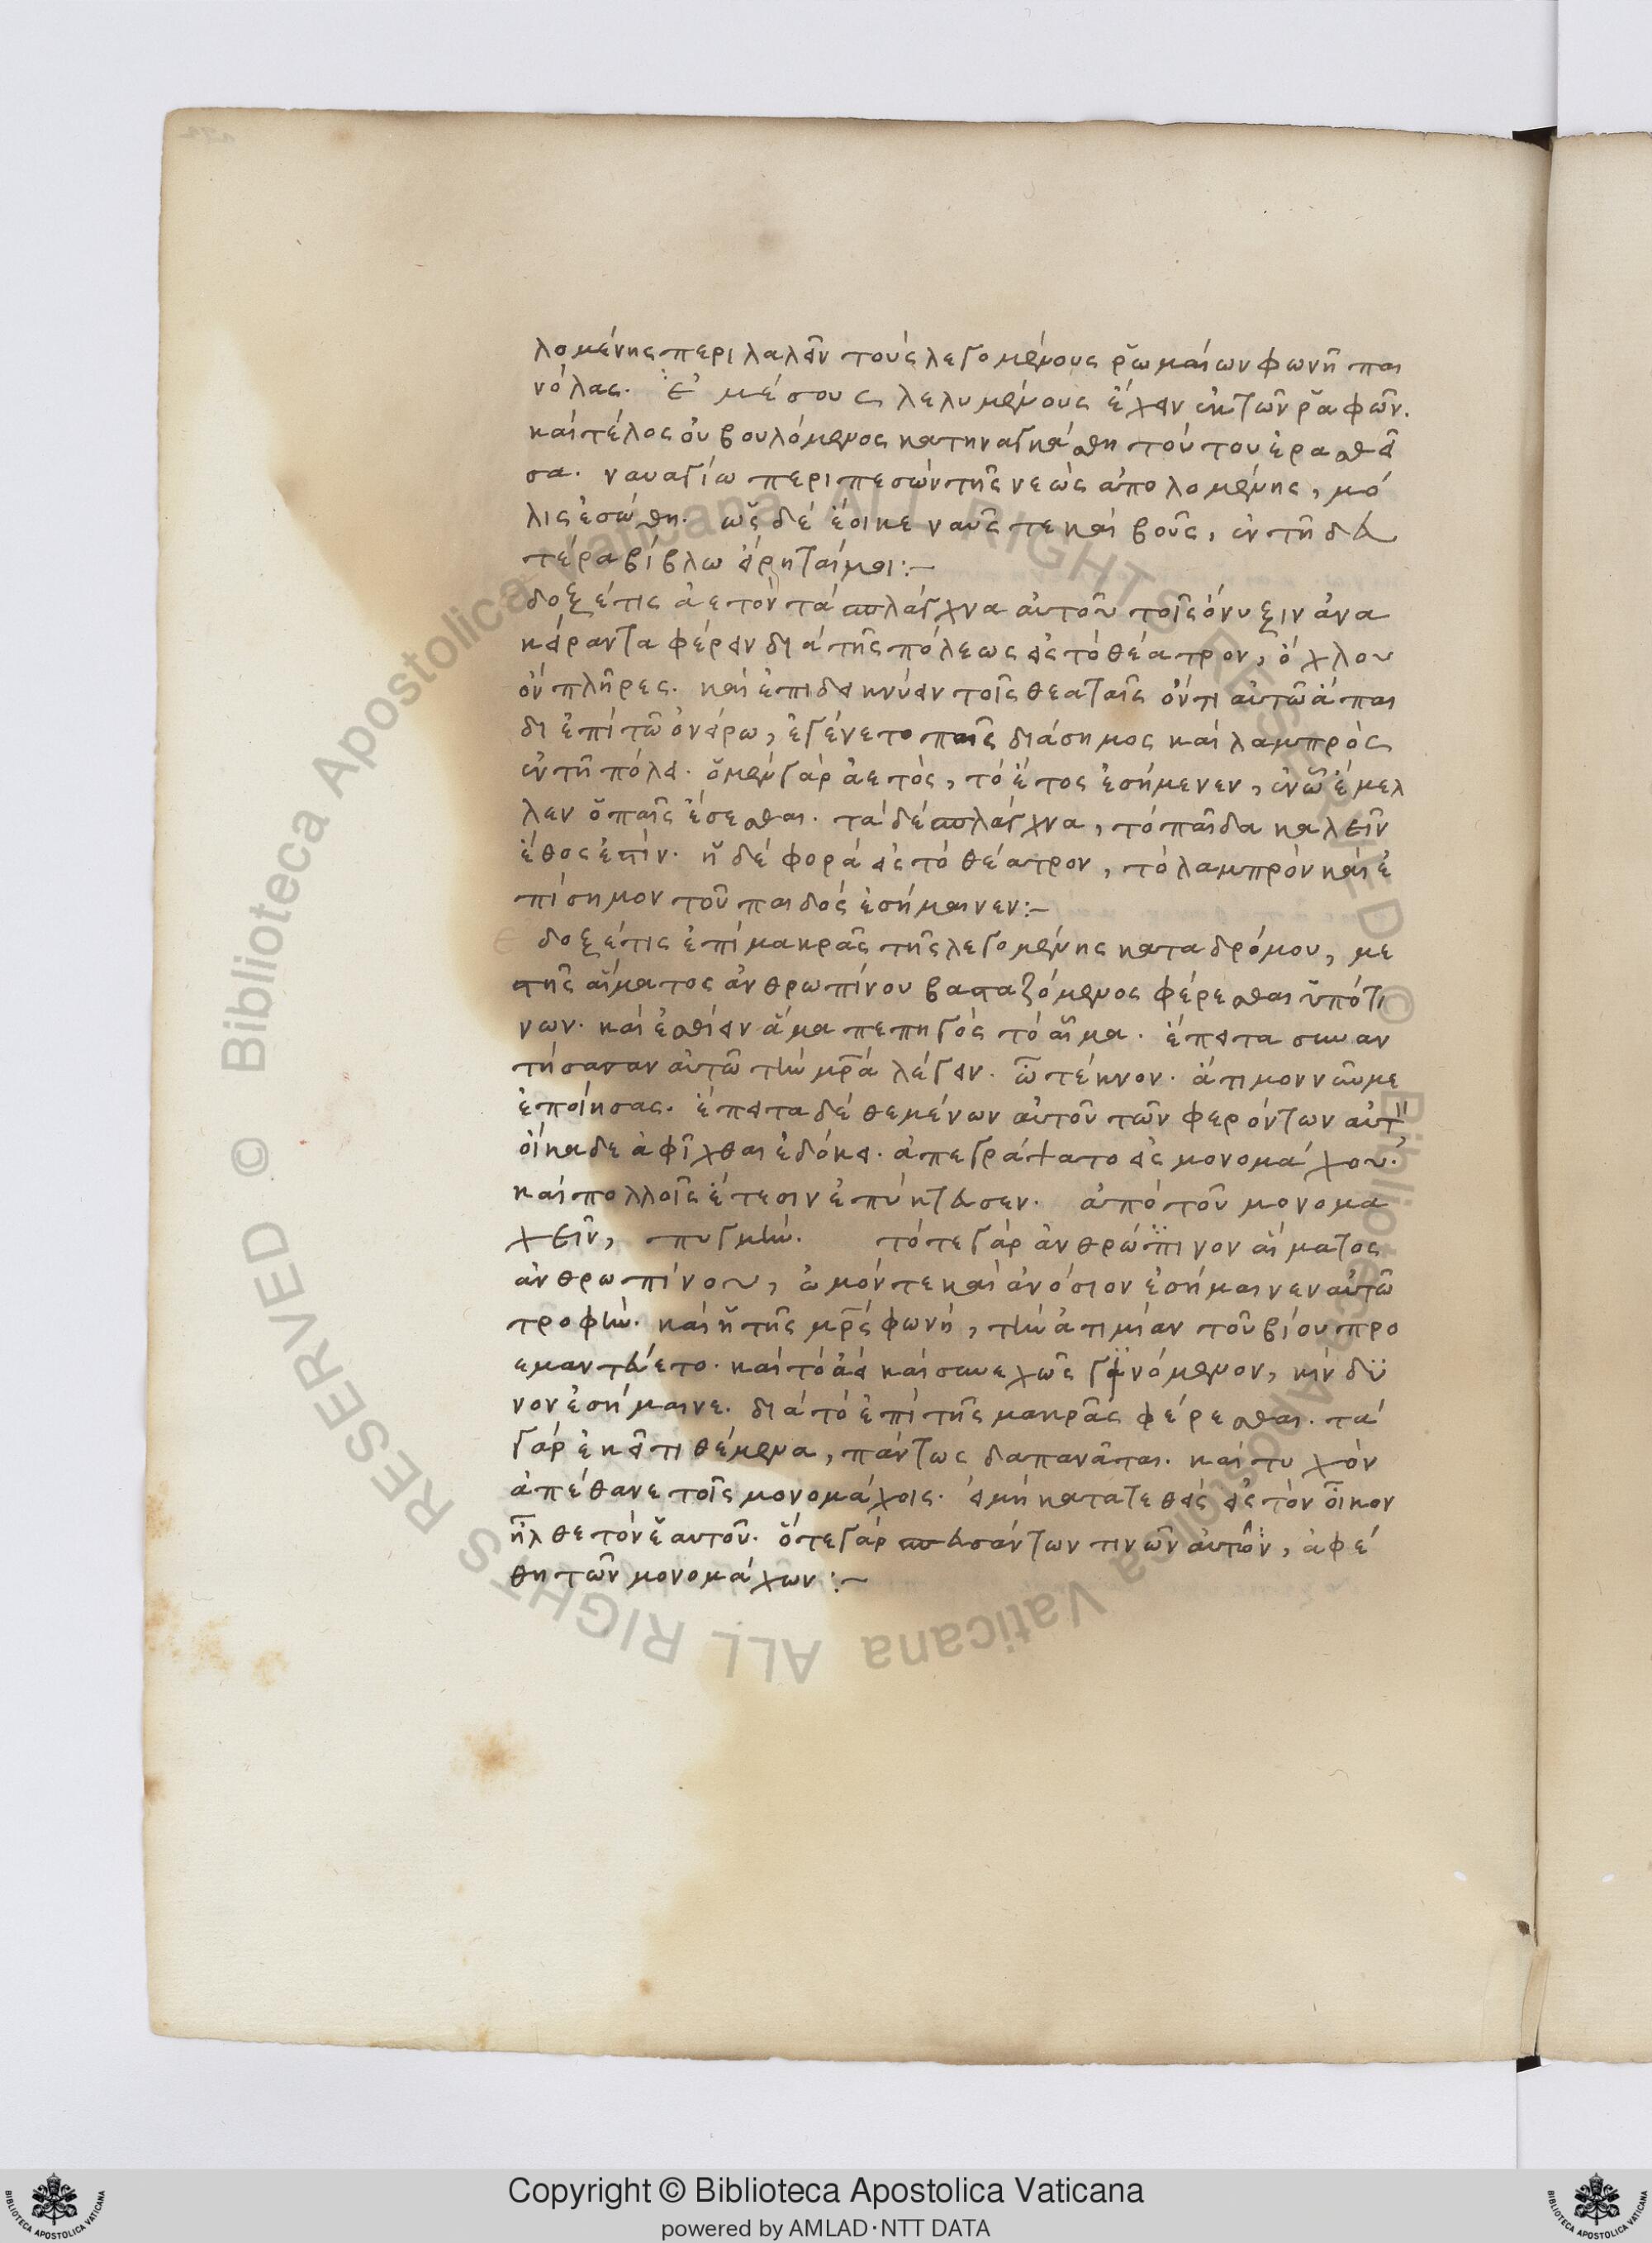 λομένης περιλαλεῖν τοὺς λεγομένους ῥωμαίων φωνῇ παι
νόλας. ἐ μέσους λελυμένους ἔχειν ἐκ τῶν ῥαφῶν.
καὶ τέλος οὐ βουλόμενος κατηναγκάσθη τούτου ἐρασθεῖ
σα. ναυαγίω περιπεσὼν τῆς νεὼς ἀπολομένης, μό
λις ἐσώθη. ὡς δὲ ἔοικε ναῦς τε καὶ βοῦς, ἐν τῇ δευ
τέρα βίβλω εἴρηταί μοι:~
δοξέ τις ἀετὸν τὰ σπλάγχνα αὐτοῦ τοῖς ὄνυξιν ἀνα
κείραντα φέρειν διὰ τῆς πόλεως εἰς τὸ θέατρον, ὄχλου
ὂν πλῆρες. καὶ ἐπιδεικνύειν τοῖς θεαταῖς ὄντι αὐτῶ ἄπαι
δι ἐπὶ τῶ ὀνείρω, ἐγένετο παῖς διάσημος καὶ λαμπρὸς
ἐν τῇ πόλει. ὁ μὲν γὰρ ἀετὸς, τὸ ἔτος ἐσήμενεν, ἐν ᾧ ἔμελ
λεν ὁ παῖς ἔσεσθαι. τὰ δὲ σπλάγχνα, τὸ παῖδα καλεῖν
ἔθος ἐστίν. ἡ δὲ φορὰ εἰς τὸ θέατρον, τὸ λαμπρὸν καὶ ἐ
πίσημον τοῦ παιδὸς ἐσήμαινεν:~
δοξέ τις ἐπὶ μακρᾶς τῆς λεγομένης καταδρόμου, με
στῆς αἵματος ἀνθρωπίνου βασταζόμενος φέρεσθαι ὑπό τι
νων. καὶ ἐσθίειν ἅμα πεπηγὸς τὸ αἷμα. ἔπειτα συναν
τήσασαν αὐτῶ τὴν μρᾶ λέγειν. ὦ τέκνον. ἄτιμον νῦν με
ἐποίησας. ἔπειτα δὲ θεμένων αὐτοῦ τῶν φερόντων αὐτ
οἴκαδε ἀφῖχθαι ἐδόκει. ἀπεγράψατο εἰς μονομάχου.
καὶ πολλοῖς ἔτεσιν ἐπύκτευσεν. ἀπὸ τοῦ μονομα
χεῖν, πυγμήν. τότε γὰρ ἀνθρώπινον αἵματος
ἀνθρωπίνου, ὠμόν τε καὶ ἀνόσιον ἐσήμαινεν αὐτῶ
τροφήν. καὶ ἡ τῆς μρς φωνὴ, τὴν ἀτιμίαν τοῦ βίου προ
εμαντεύετο. καὶ τὸ ἀεὶ καὶ συνεχῶς γινόμενον, κίνδυ
νον ἐσήμαινε. διὰ τὸ ἐπὶ τῆς μακρᾶς φέρεσθαι. τὰ
γὰρ ἐκεῖ τιθέμενα, πάντως δαπανᾶται. καὶ τυχὸν
ἀπέθανε τοῖς μονομάχοις. εἰ μὴ κατατεθεὶς εἰς τὸν οἶκον
ἦλθε τὸν ἑαυτοῦ. ὅτε γὰρ σπευσάντων τινῶν αὐτῶν, ἀφέ
θη τῶν μονομάχων:~
Copyright © Biblioteca Apostolica Vaticana
powered by AMLAD·NTT DATA